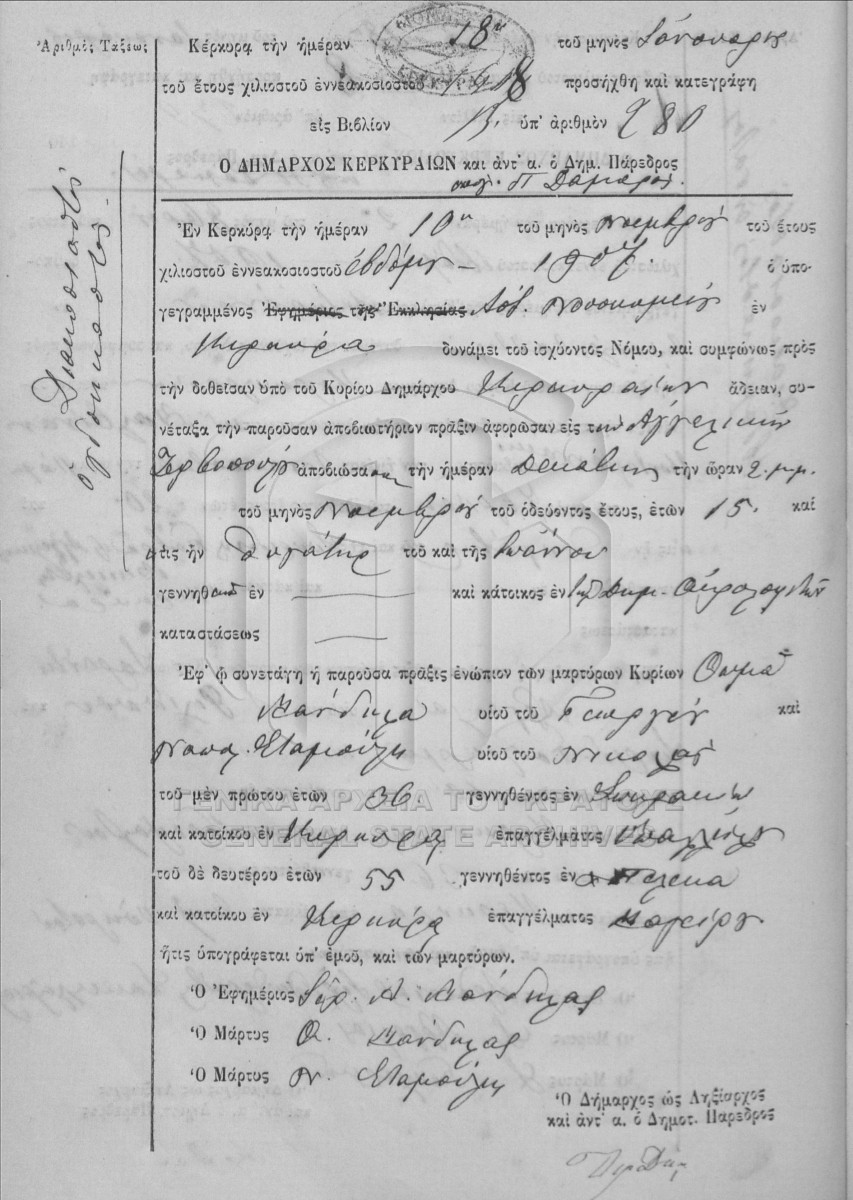 Ἀριθμὸς Τάξεως
Διακόσιοστὸς
ὀγδοηκοστὸς
Κέρκυρα τὴν ἡμέραν 18ην τοῦ μηνὸς Ἰανουαρίου
τοῦ ἔτους χιλιοστοῦ ἐννεακοσιοστοῦ 1908 προσήχθη καὶ κατεγράφη
εἰς Βιβλίον Β. ὑπ' ἀριθμὸν 280
Ο ΔΗΜΑΡΧΟΣ ΚΕΡΚΥΡΑΙΩΝ καὶ ἀντ' α. ὁ Δημ. Πάρεδρος
Ἐν Κερκύρᾳ τὴν ἡμέραν 10ην τοῦ μηνὸς Νοεμβρίου τοῦ ἔτους
χιλιοστοῦ ἐννεακοσιοστοῦ ἑβδόμου – 1907. ὁ ὑπο-
γεγραμμένος Ἐφημέριος τῆς Ἐκκλησίας Νοσοκομείου ἐν
Κερκύρᾳ δυνάμει τοῦ ἰσχύοντος Νόμου, καὶ συμφώνως πρὸς
τὴν δοθεῖσαν ὑπὸ τοῦ Κυρίου Δημάρχου Κερκυραίων ἄδειαν, συ-
νέταξα τὴν παροῦσαν ἀποβιωτήριον πρᾶξιν ἀφορῶσαν εἰς τὴν Ἀγγελικὴν
Ζερβοπούλου ἀποβιώσασαν τὴν ἡμέραν Δεκάτην τὴν ὥραν 2. μ.μ.
τοῦ μηνὸς Νοεμβρίου τοῦ ὁδεύοντος ἔτους, ἐτῶν 15. καὶ
τις ἦν θυγάτηρ τοῦ καὶ τῆς Ἰωάννου
γεννηθ ἐν — καὶ κάτοικος ἐν Δημ.
καταστάσεως —
Ἐφ' ᾧ συνετάγη ἡ παροῦσα πρᾶξις ἐνώπιον τῶν μαρτύρων Κυρίων Θωμᾶ
Μάνδηλα υἱοῦ τοῦ Γεωργίου καὶ
Σταμούλη υἱοῦ τοῦ Νικολάου
τοῦ μὲν πρώτου ἐτῶν 36 γεννηθέντος ἐν
καὶ κατοίκου ἐν Κερκύρᾳ ἐπαγγέλματος
τοῦ δὲ δευτέρου ἐτῶν 55 γεννηθέντος ἐν Πέλεκα
καὶ κατοίκου ἐν Κερκύρᾳ ἐπαγγέλματος μαγείρου
ἥτις ὑπογράφεται ὑπ' ἐμοῦ, καὶ τῶν μαρτύρων.
Ὁ Ἐφημέριος Μάνδηλας
Ὁ Μάρτυς Θ. Μάνδηλας
Ὁ Μάρτυς Ν. Σταμούλης
Ὁ Δήμαρχος ὡς Ληξίαρχος
καὶ ἀντ' α. ὁ Δημοτ. Πάρεδρος
ΓΕΝΙΚΑ ΑΡΧΕΙΑ ΤΟΥ ΚΡΑΤΟΥΣ
GENERAL STATE ARCHIVES